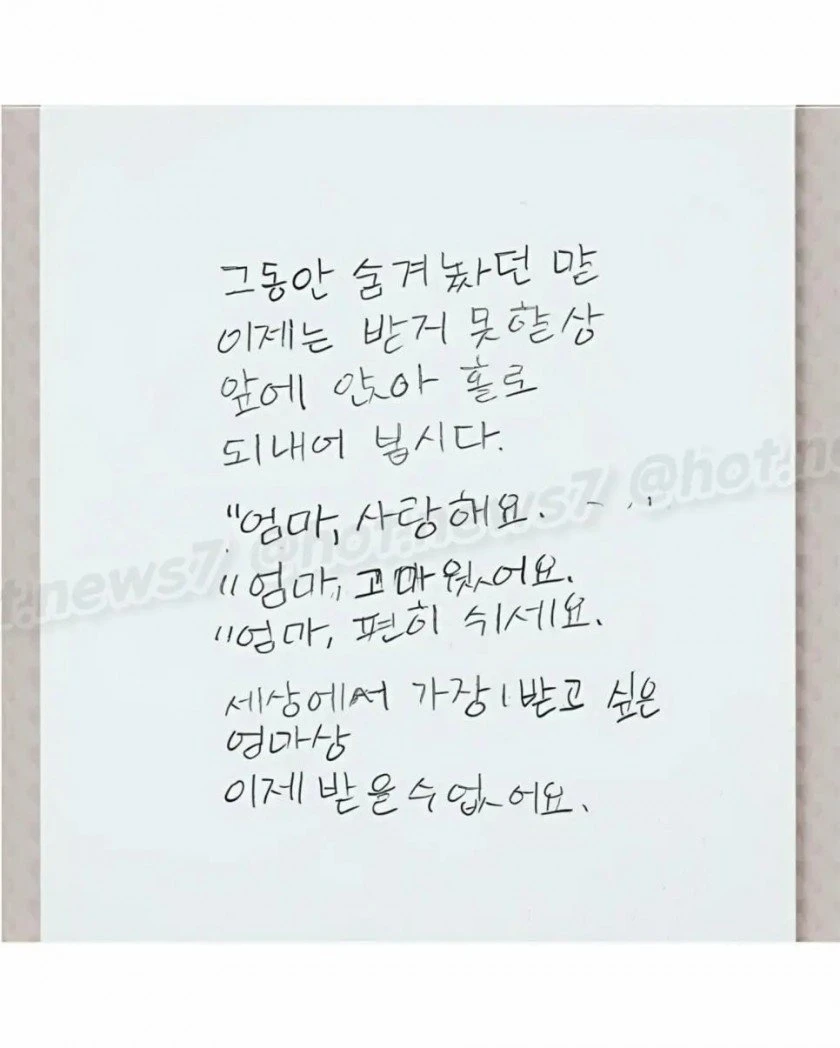 그동안 숨겨놨던 말
이제는 받지 못할상
앞에 앉아 홀로
되내어 봅시다.
"엄마, 사랑해요.
"엄마, 고마웠어요.
"엄마, 편히 쉬세요.
세상에서 가장 받고 싶은
엄마상
이제 받을수없어요.
@hot.news7